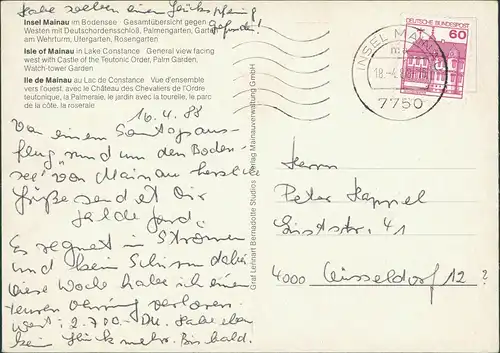 Habe soeben einen Glückspfennig
gefunden!
Insel Mainau im Bodensee · Gesamtübersicht gegen
Westen mit Deutschordensschloß, Palmengarten, Garten
am Wehrturm, Ufergarten, Rosengarten
Isle of Mainau in Lake Constance · General view facing
west with Castle of the Teutonic Order, Palm Garden,
Watch-tower Garden
Ile de Mainau au Lac de Constance · Vue d'ensemble
vers l'ouest, avec le Château des Chevaliers de l'Ordre
teutonique, la Palmeraie, le jardin avec la tourelle, le parc
de la côte, la roseraie
16.4.88
Von einem Samstagsaus-
flug „rund um den Boden-
see" von Mainau herzliche
Grüße sendet Dir
Es regnet in Strömen
und kein Schirm dabei
Diese Woche habe ich einen
teuren Ohrring verloren.
Wert: 2.700- DM. Habe eben
kein Glück mehr. Bis bald.
Graf Lennart Bernadotte Studios · Verlag Mainauverwaltung GmbH
DEUTSCHE BUNDESPOST
60
INSEL MAINAU
7750
Peter Kappel
41
4000 Düsseldorf 12 ?